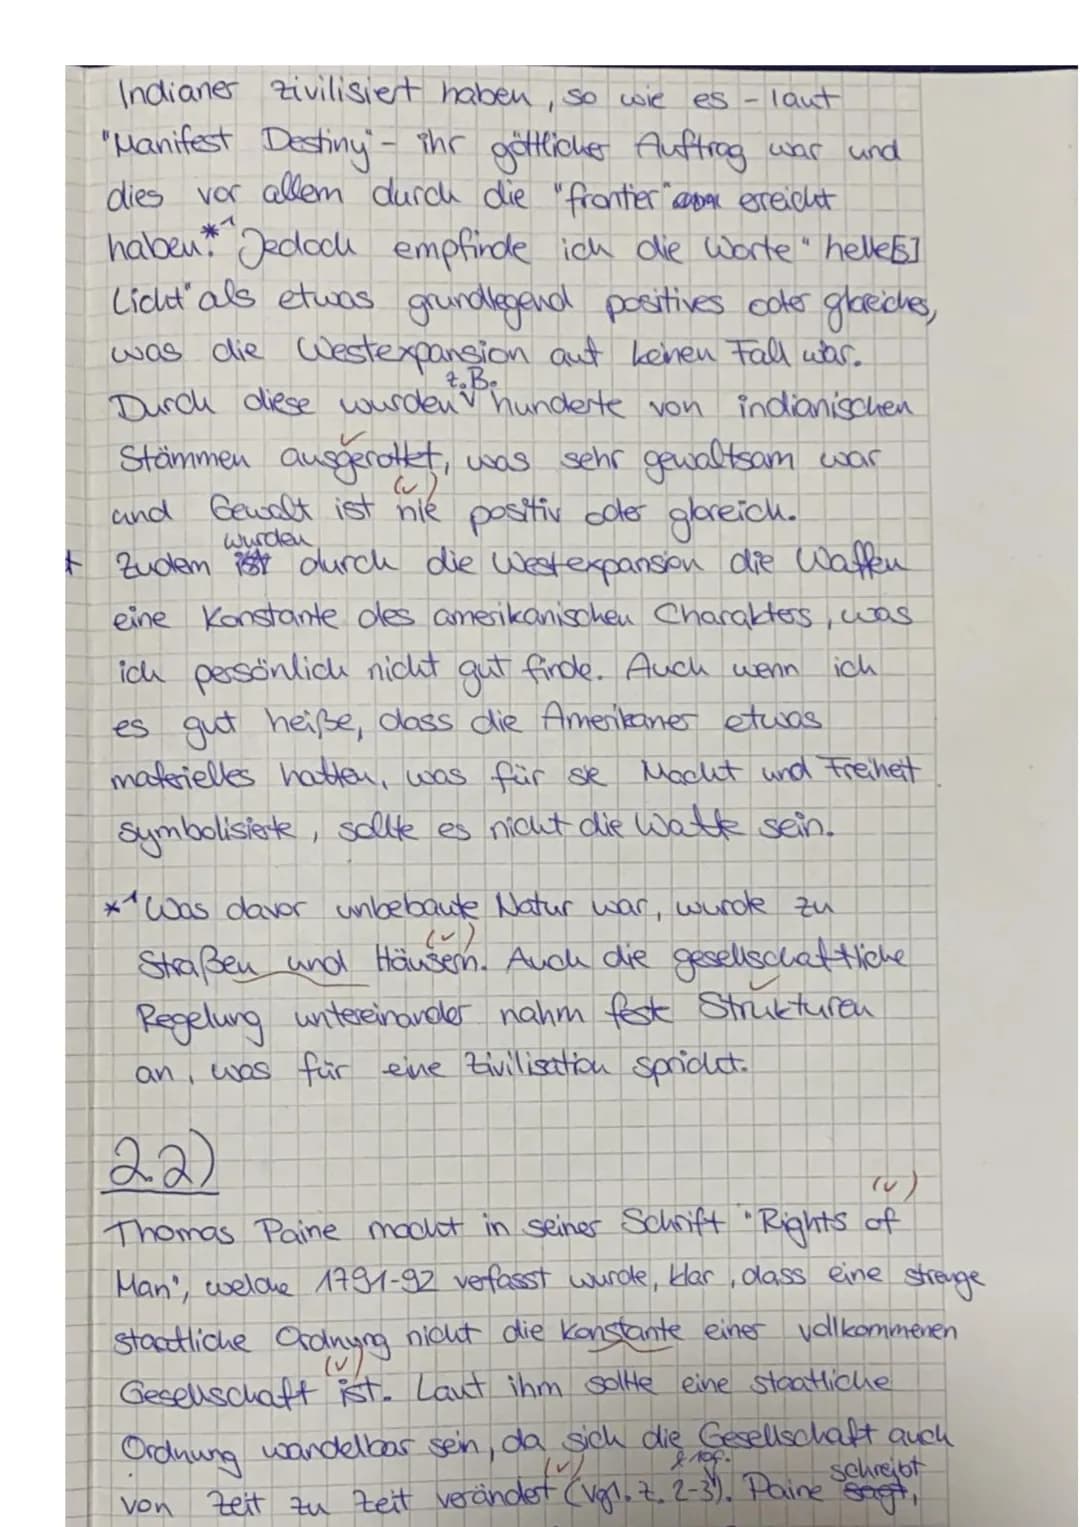 Indianer zivilisiert haben, so wie es - laut
"Manifest Destiny" - ihr göttlicher Auftrag war und
dies vor allem durch die "frontier" erreicht
haben.*¹ Jedoch empfinde ich die Worte "helle[s]
Licht" als etwas grundlegend positives oder gloreiches,
was die Westexpansion auf keinen Fall war.
z.B.
Durch diese wurden hunderte von indianischen
Stämmen ausgerottet, was sehr gewaltsam war
und Gewalt ist nie positiv oder gloreich.
wurden
Zudem durch die Westexpansion die Waffen
eine Konstante des amerikanischen Charakters, was
ich persönlich nicht gut finde. Auch wenn ich
es gut heiße, dass die Amerikaner etwas
materielles hatten, was für sie Macht und Freiheit
symbolisierte, sollte es nicht die Waffe sein.
*¹ Was davor unbebaute Natur war, wurde zu
Straßen und Häusern. Auch die gesellschaftliche
Regelung untereinander nahm feste Strukturen
an, was für eine Zivilisation spricht.
2.2)
Thomas Paine macht in seiner Schrift "Rights of
Man", welche 1791-92 verfasst wurde, klar, dass eine strenge
staatliche Ordnung nicht die Konstante einer vollkommenen
Gesellschaft ist. Laut ihm sollte eine staatliche
Ordnung wandelbar sein, da sich die Gesellschaft auch
schreibt
von Zeit zu Zeit verändert (vgl. Z. 2-3). Paine sagt,